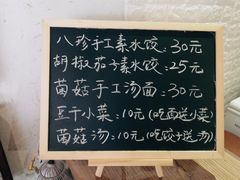 八珍手工素水饺:30元
胡椒茄子素水饺:25元
菌菇手工汤面:30元
豆干小菜:10元(吃面送小菜)
菌菇汤:10元(吃饺子送汤)